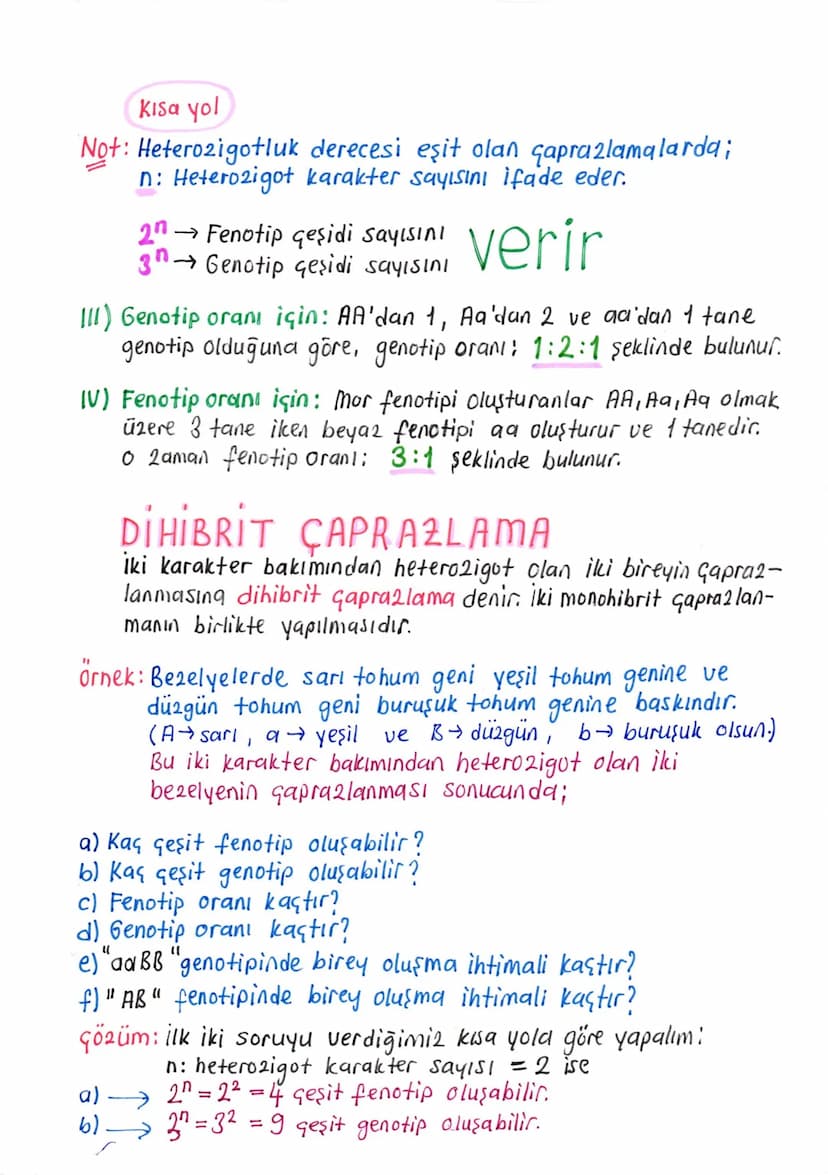 Kısa yol
Not: Heterozigotluk derecesi eşit olan çaprazlamalarda;
n: Heterozigot karakter sayısını ifade eder.
2ⁿ → Fenotip çeşidi sayısını verir
3ⁿ → Genotip çeşidi sayısını
III) Genotip oranı için: AA'dan 1, Aa'dan 2 ve aa'dan 1 tane
genotip olduğuna göre, genotip oranı; 1:2:1 şeklinde bulunur.
IV) Fenotip oranı için: Mor fenotipi oluşturanlar AA, Aa, Aa olmak
üzere 3 tane iken beyaz fenotipi aa oluşturur ve 1 tanedir.
O zaman fenotip oranı; 3:1 şeklinde bulunur.
DİHİBRİT ÇAPRAZLAMA
İki karakter bakımından heterozigot olan iki bireyin çapraz-
lanmasına dihibrit çaprazlama denir. İki monohibrit çaprazlan-
manın birlikte yapılmasıdır.
Örnek: Bezelyelerde sarı tohum geni yeşil tohum genine ve
düzgün tohum geni buruşuk tohum genine baskındır.
(A→ sarı, a → yeşil ve B→ düzgün, b→ buruşuk olsun.)
Bu iki karakter bakımından heterozigot olan iki
bezelyenin çaprazlanması sonucunda;
a) Kaç çeşit fenotip oluşabilir?
b) Kaç çeşit genotip oluşabilir?
c) Fenotip oranı kaçtır?
d) Genotip oranı kaçtır?
e) "aaBB" genotipinde birey oluşma ihtimali kaçtır?
f) "AB" fenotipinde birey oluşma ihtimali kaçtır?
Çözüm: İlk iki soruyu verdiğimiz kısa yola göre yapalım:
n: heterozigot karakter sayısı = 2 ise
a) → 2ⁿ = 2² = 4 çeşit fenotip oluşabilir.
b) → 3ⁿ = 3² = 9 çeşit genotip oluşabilir.